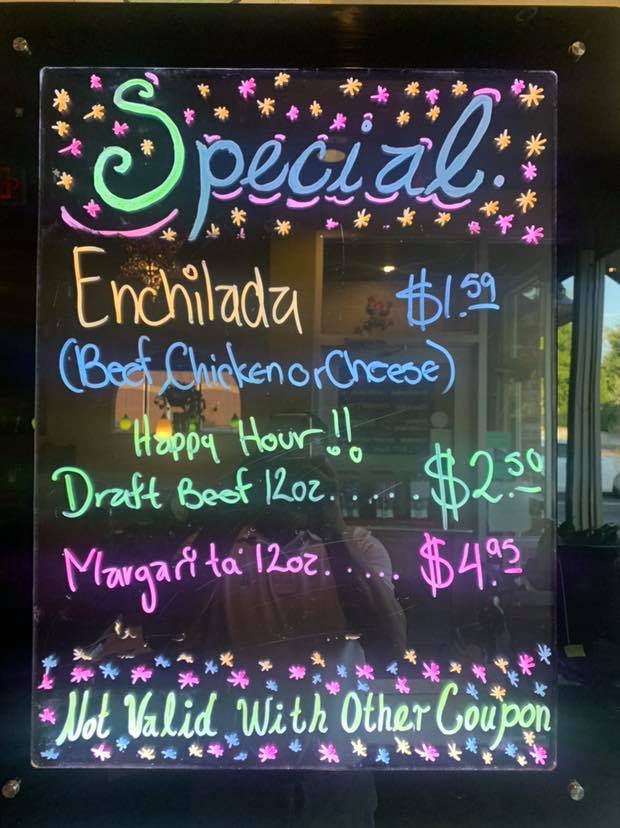 Special.
Enchilada $1.59
(Beef, Chicken or Cheese)
Happy Hour!!
Draft Beef 12oz...... $2.50
Margarita 12oz...... $4.95
Not Valid With Other Coupon